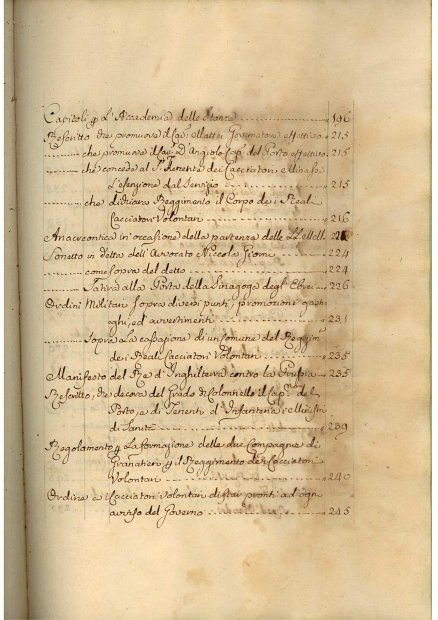 Capitoli p L'Accademia delle Stanze 196
Rescritto che promuove il Sag. Mattei Formatore effettivo 215
che promuove il Sag. D'Angiolo Cap. del Porto effettivo 215
che concede al S. Tenente dei Cacciatori
L'esenzione dal Servizio 215
che dichiara Reggimento il Corpo dei Reali
Cacciatori Volontari 216
Anacreontica in occasione della partenza delle LL
Sonetto in detta dell'Avvocato Niccola Giorni 224
come sopra del detto 224
Satira alla Porta della Sinagoga degl' Ebrei 226
Ordini Militari sopra diversi punti, promozioni
ed avvertimenti 231
sopra a la cassazione di un comune del Reggim
dei Reali Cacciatori Volontari 235
Manifesto del Re d'Inghilterra contro la Prussia 235
Rescritto, che decora del Grado di Colonnello il Cap. del
Porto, e di Tenenti d'Infanteria i Ministri
di Sanità 239
Regolamento p La formazione delle due Compagnie di
Granatieri p il Reggimento dei Cacciatori
Volontari 240
Ordine a i Cacciatori Volontari di star pronti ad ogni
avviso del Governo 245